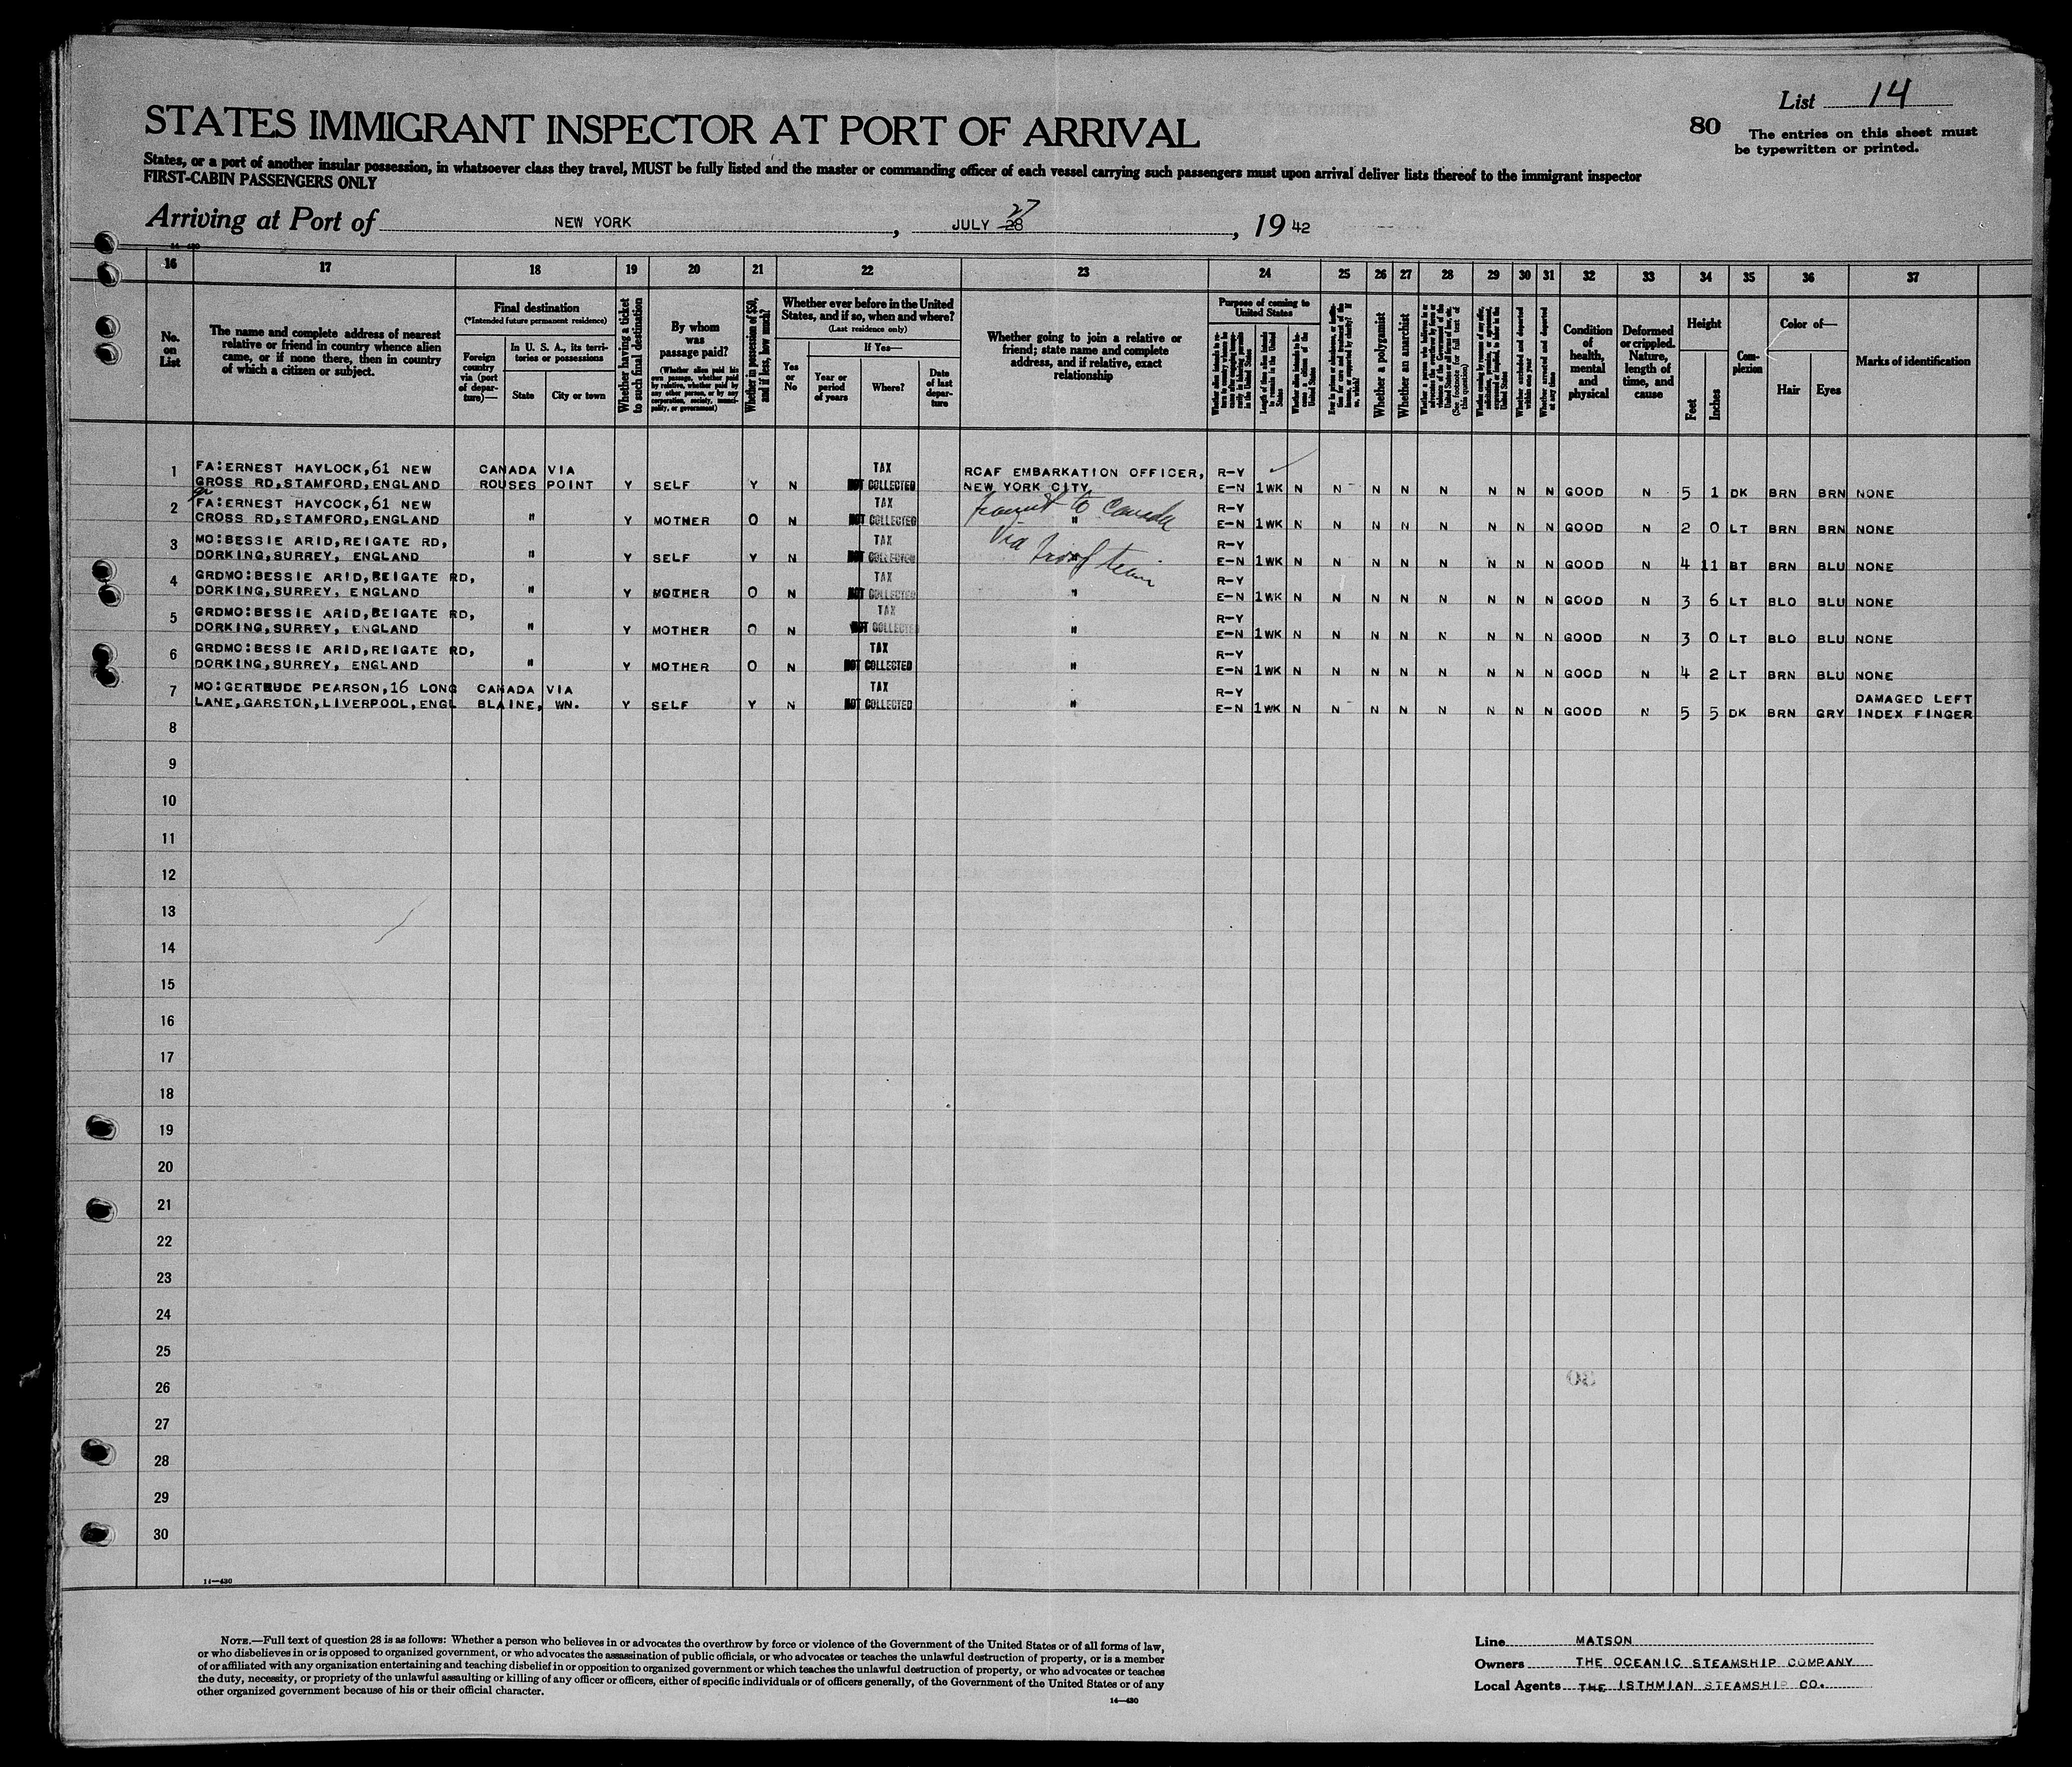 List 14
80 The entries on this sheet must
be typewritten or printed.
STATES IMMIGRANT INSPECTOR AT PORT OF ARRIVAL
States, or a port of another insular possession, in whatsoever class they travel, MUST be fully listed and the master or commanding officer of each vessel carrying such passengers must upon arrival deliver lists thereof to the immigrant inspector
FIRST-CABIN PASSENGERS ONLY
Arriving at Port of NEW YORK, JULY 28 27, 1942
14—430
16 17 18 19 20 21 22 23 24 25 26 27 28 29 30 31 32 33 34 35 36 37
No. on List
The name and complete address of nearest
relative or friend in country whence alien
came, or if none there, then in country
of which a citizen or subject.
Final destination
(*Intended future permanent residence)
Foreign country via (port of departure)—
In U. S. A., its territories or possessions
State
City or town
Whether having a ticket to such final destination
By whom was passage paid?
(Whether alien paid his own passage, whether paid by relative, whether paid by any other person, or by any corporation, society, municipality, or government)
Whether in possession of $50, and if less, how much?
Whether ever before in the United States, and if so, when and where?
(Last residence only)
Yes or No
If Yes—
Year or period of years
Where?
Date of last departure
Whether going to join a relative or
friend; state name and complete
address, and if relative, exact
relationship
Purpose of coming to United States
Length of time alien intends to remain in the United States
Whether a polygamist
Whether an anarchist
Condition of health, mental and physical
Deformed or crippled. Nature, length of time, and cause
Height
Feet
Inches
Complexion
Color of—
Hair
Eyes
Marks of identification
1 FA:ERNEST HAYLOCK,61 NEW CANADA VIA TAX RCAF EMBARKATION OFFICER, R-Y
GROSS RD,STAMFORD,ENGLAND ROUSES POINT Y SELF Y N NOT COLLECTED NEW YORK CITY. E-N 1WK N N N N N N N N GOOD N 5 1 DK BRN BRN NONE
2 FA:ERNEST HAYCOCK,61 NEW TAX R-Y
CROSS RD,STAMFORD,ENGLAND " Y MOTHER O N NOT COLLECTED " E-N 1WK N N N N N N N N GOOD N 2 0 LT BRN BRN NONE
to Canada
3 MO:BESSIE ARID,REIGATE RD, TAX Via R-Y
DORKING,SURREY, ENGLAND " Y SELF Y N NOT COLLECTED " E-N 1WK N N N N N N N N GOOD N 4 11 BT BRN BLU NONE
4 GRDMO:BESSIE ARID,REIGATE RD, TAX R-Y
DORKING,SURREY, ENGLAND " Y MOTHER O N NOT COLLECTED " E-N 1WK N N N N N N N N GOOD N 3 6 LT BLO BLU NONE
5 GRDMO:BESSIE ARID,REIGATE RD, TAX R-Y
DORKING,SURREY, ENGLAND " Y MOTHER O N NOT COLLECTED " E-N 1WK N N N N N N N N GOOD N 3 0 LT BLO BLU NONE
6 GRDMO:BESSIE ARID,REIGATE RD, TAX R-Y
DORKING,SURREY, ENGLAND " Y MOTHER O N NOT COLLECTED " E-N 1WK N N N N N N N N GOOD N 4 2 LT BRN BLU NONE
7 MO:GERTRUDE PEARSON,16 LONG CANADA VIA TAX R-Y DAMAGED LEFT
LANE,GARSTON,LIVERPOOL,ENGL BLAINE, WN. Y SELF Y N NOT COLLECTED " E-N 1WK N N N N N N N N GOOD N 5 5 DK BRN GRY INDEX FINGER
8
9
10
11
12
13
14
15
16
17
18
19
20
21
22
23
24
25
26
27
28
29
30
14—430
NOTE.—Full text of question 28 is as follows: Whether a person who believes in or advocates the overthrow by force or violence of the Government of the United States or of all forms of law,
or who disbelieves in or is opposed to organized government, or who advocates the assassination of public officials, or who advocates or teaches the unlawful destruction of property, or is a member
of or affiliated with any organization entertaining and teaching disbelief in or opposition to organized government or which teaches the unlawful destruction of property, or who advocates or teaches
the duty, necessity, or propriety of the unlawful assaulting or killing of any officer or officers, either of specific individuals or of officers generally, of the Government of the United States or of any
other organized government because of his or their official character.
14—430
Line MATSON
Owners THE OCEANIC STEAMSHIP COMPANY
Local Agents THE ISTHMIAN STEAMSHIP CO.